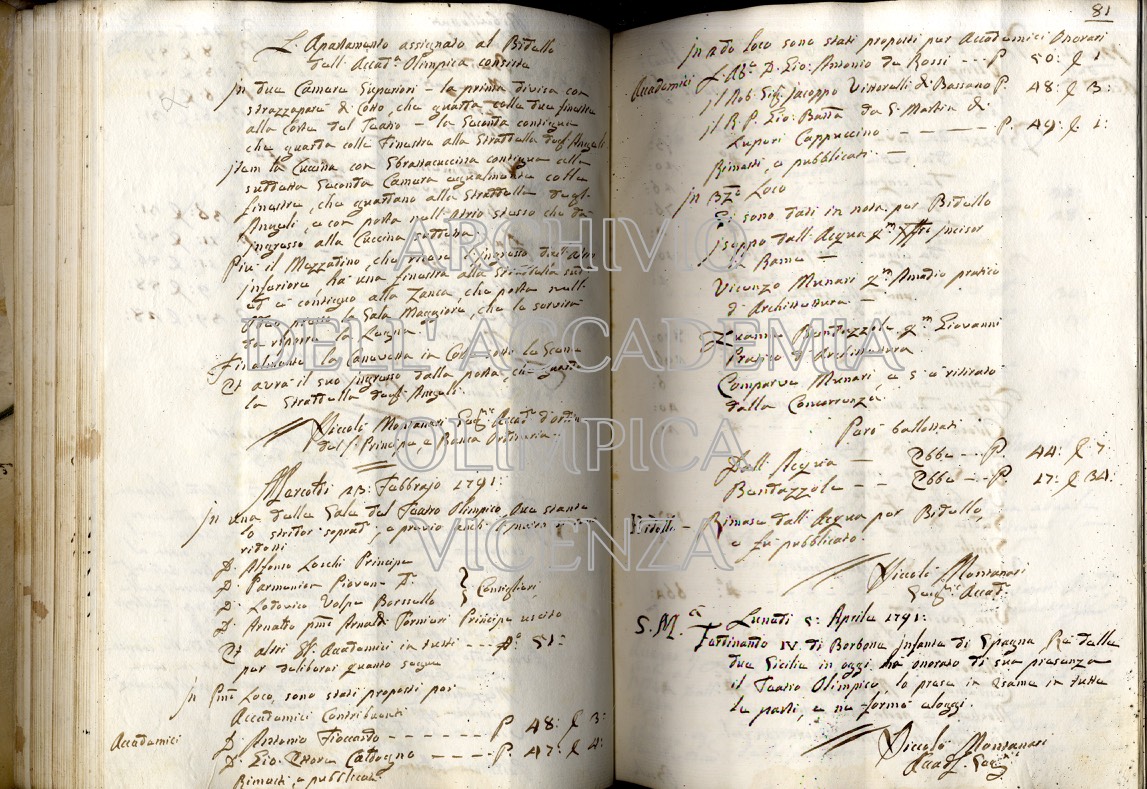 L'Apartamento assegnato al Bidello
dell'Accad.ª Olimpica consiste
In due Camere Superiori – la prima divisa con
strazzapara di Cotto, che guarda colle due finestre
alla Corte del Teatro – la Seconda contigua
che guarda colla Finestra alla Strettella degl'Angeli
Item la Cucina con Sbrattacuccina contigua alla
suddetta Seconda Camera egualmente colle
finestre, che guardano alla Strettella degl'
Angeli, e con porta nell'Atrio stesso che dà
ingresso alla Cuccina suddetta.
Più il Mezzadino, che riceve l'ingresso dall'Atrio
inferiore, ha una finestra alla Strettella sud.ª
ed è contiguo alla Zanca, che porta nell'
presso la Sala Maggiore, che le servirà
da riporre le Legna
Finalmente la Canevetta in Corte sotto la Scena
et avrà il suo ingresso dalla porta, che guarda
la Strettella degl'Angeli.
Niccolò Montanari Seg.rio Accad.º d'ordine
del S.r Principe e Banca Ordinaria
Mercordì 23: Febbrajo 1791:
In una delle Sale del Teatro Olimpico, due stante
lo stridor soprad.º, e previo
ridotti
D. Alfonso Loschi Principe
D. Parmenion Piovene
D. Lodovico Volpe Borsello
Consiglieri
D. Arnaldo p.mo Arnaldi Tornieri Principe uscito
Et altri SS.ri Accademici in tutti --- N.º 51:
per deliberar quanto segue
In P.mo Loco, sono stati proposti per
Accademici Contribuenti
Accademici
D. Antonio Fioccardo ------ P. 48: C 3:
D. Gio: Ettore Caldogno ---- P. 47: C 4:
Rimasti, e pubblicati
81
In 2.do Loco sono stati proposti per Accademici Onorari
Accademici
L'Ab.e D. Gio: Antonio de Rossi --- P. 50: C 1
Il Nob. Sig.r Jacoppo Vittorelli di Bassano P. 48: C 3:
Il R. P. Gio: Batta da S. Martin di
Lupari Cappuccino ------ P. 49: C 1:
Rimasti, e pubblicati –
In 3.zo Loco
Si sono dati in nota per Bidello
Iseppo dall'Acqua q.m incisor
in Rame –
Vicenzo Munari q.m Amadio pratico
d'Architettura –
Bentazzole q.m Giovanni
Pratico d'Architettura
Comparve Munari, e s'è ritirato
dalla Concorrenza
Però ballottati
Dall'Acqua — Ebbe -- P. 44: C 7:
Bentazzole -- Ebbe -- P. 17: C 34:
Bidello – Rimase dall'Acqua per Bidello,
e fù pubblicato.
Niccolò Montanari
Seg.rio Accad.
Lunedì 5: Aprile 1791:
S. M.ª Ferdinando IV. di Borbone Infante di Spagna Rè delle
due Sicilie in oggi ha onorato di sua presenza
il Teatro Olimpico, lo prese in esame in tutte
le parti, e ne formò eloggi.
Niccolò Montanari
Accad.º Seg.rio
ARCHIVIO
DELL'ACCADEMIA
OLIMPICA
VICENZA